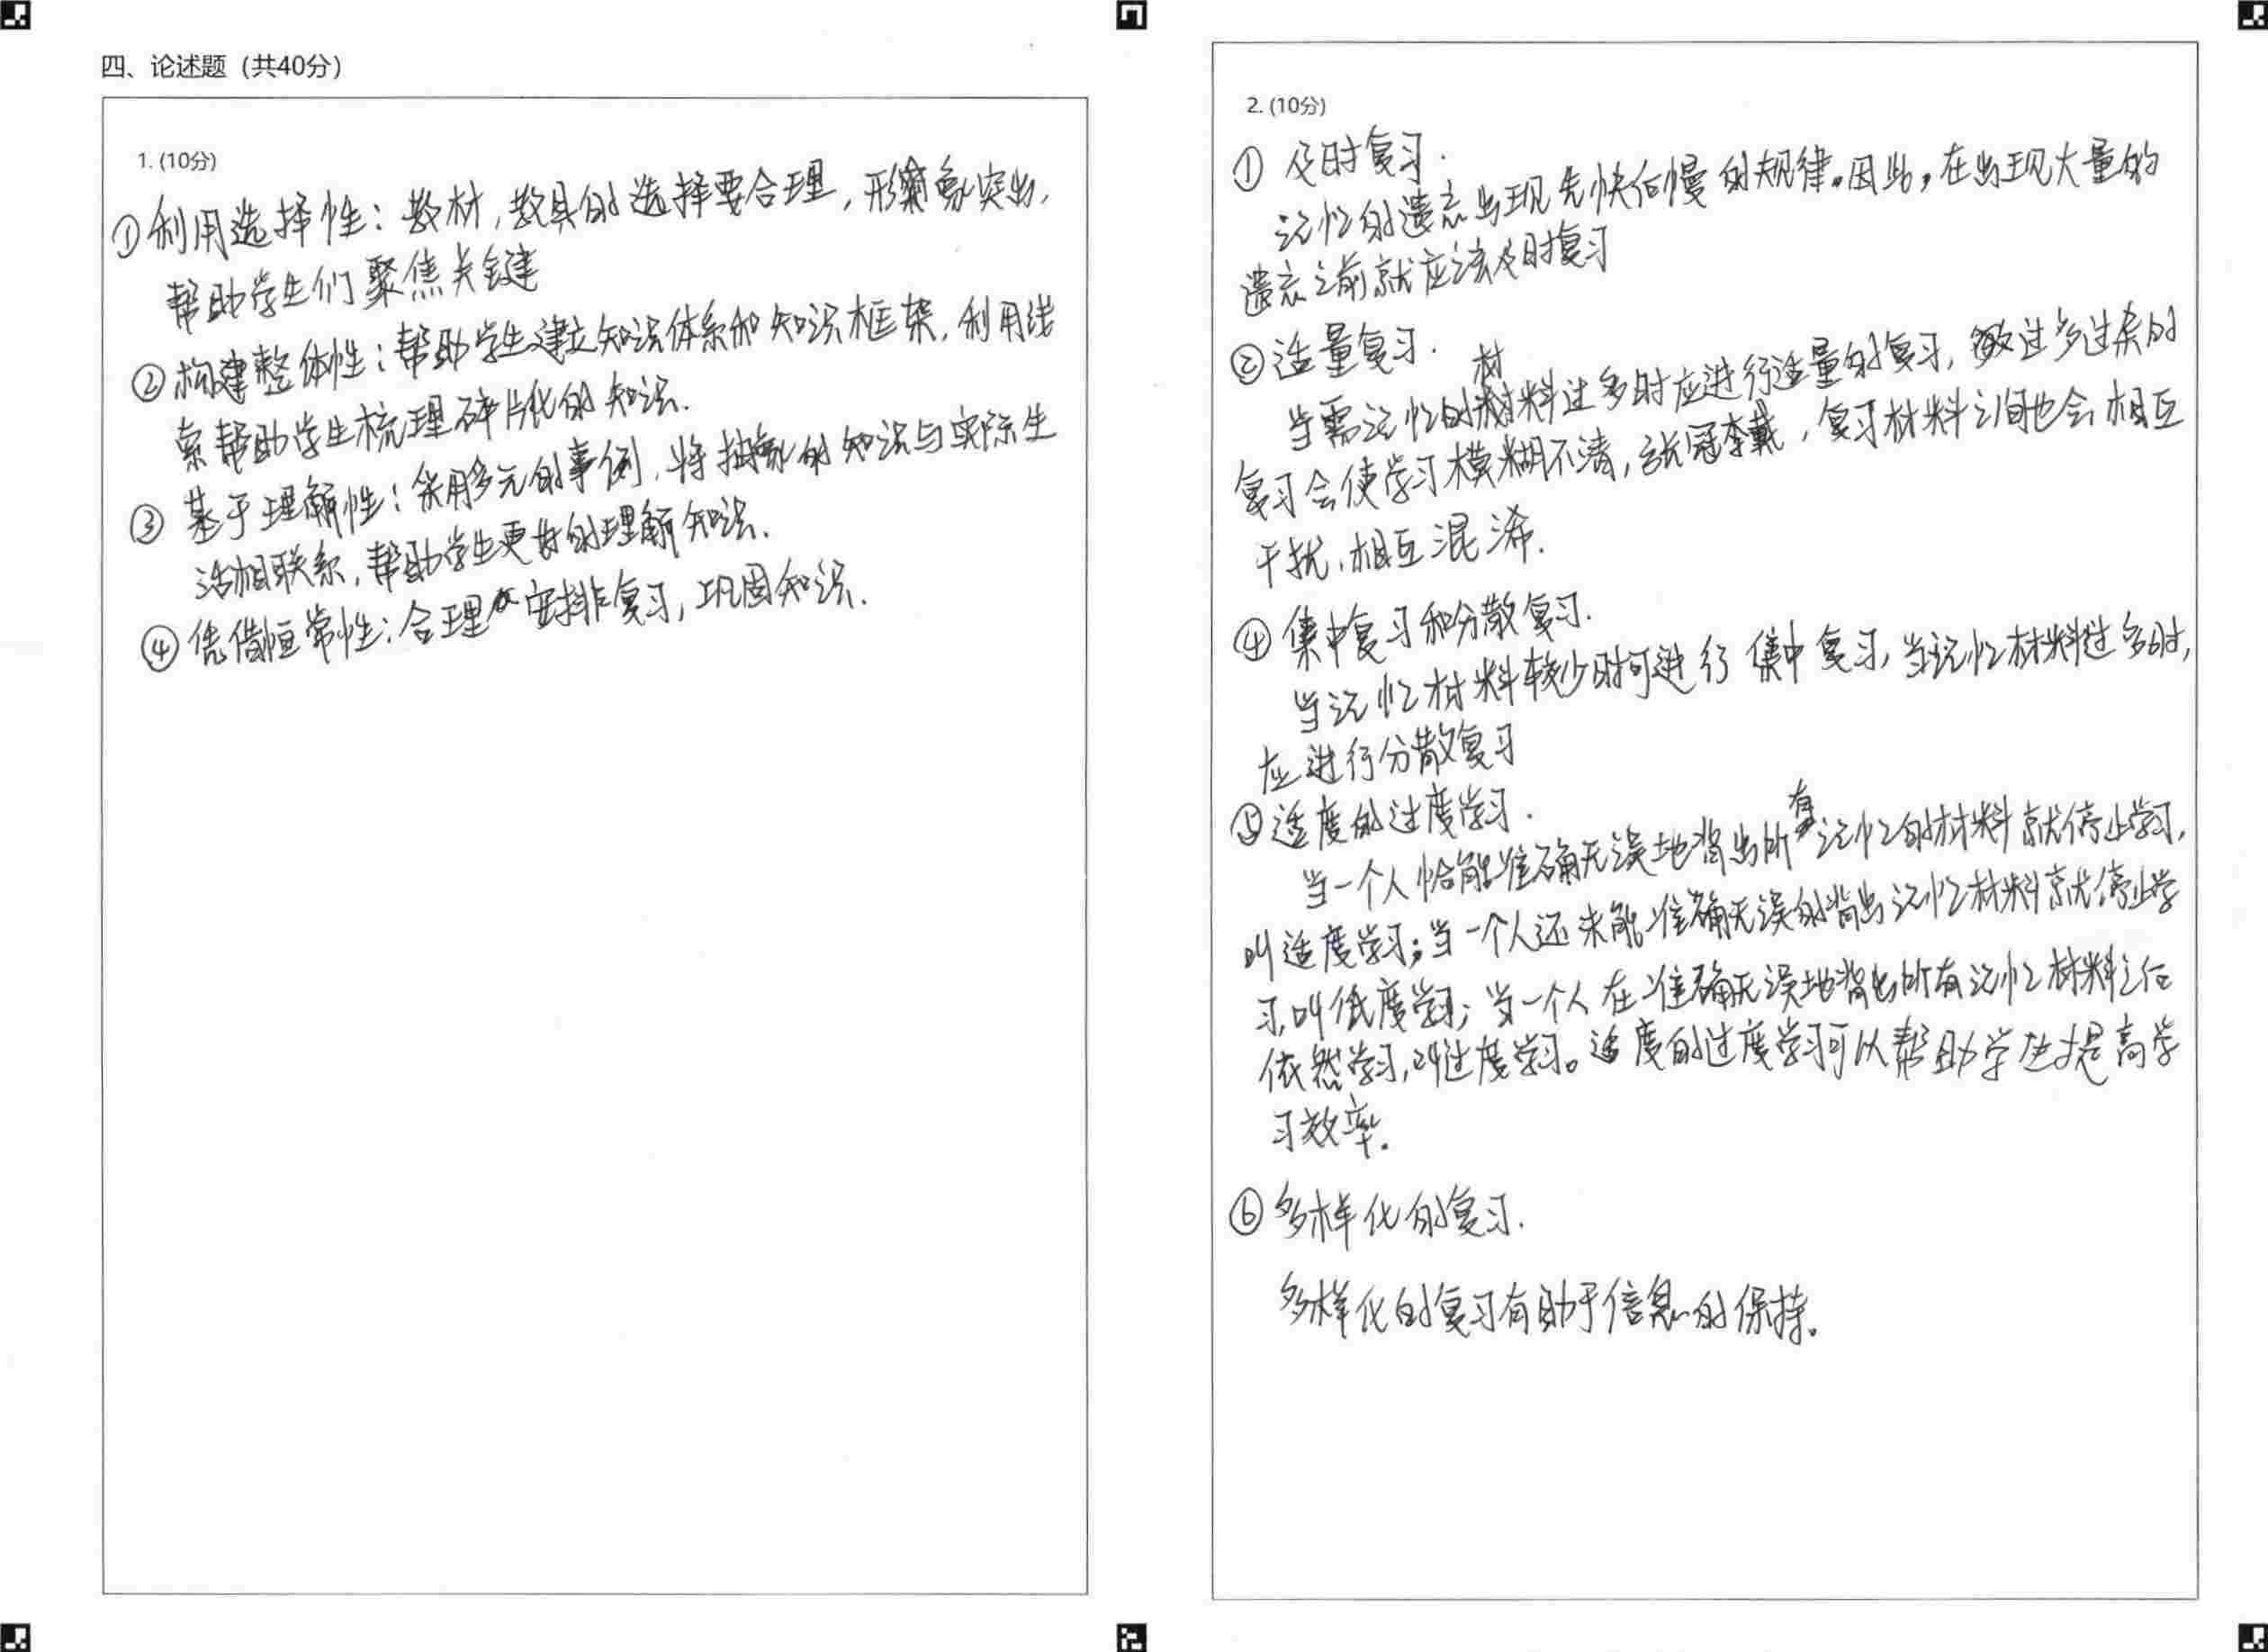 四、论述题（共40分）
1. (10分)
①利用选择性：教材，教具的选择要合理，形象突出，
帮助学生们聚焦关键
②构建整体性：帮助学生建立知识体系和知识框架，利用线
索帮助学生梳理碎片化的知识.
③基于理解性：采用多元的事例，将抽象的知识与实际生
活相联系，帮助学生更好的理解知识.
④凭借恒常性：合理安排复习，巩固知识.
2. (10分)
① 及时复习.
记忆的遗忘出现先快后慢的规律。因此，在出现大量的
遗忘之前就应该及时复习
②适量复习.
当需记忆的材料过多时应进行适量的复习，过多过杂的
复习会使学习模糊不清，张冠李戴，复习材料之间也会相互
干扰，相互混淆.
④集中复习和分散复习.
当记忆材料较少时可进行集中复习，当记忆材料过多时，
应进行分散复习
⑤适度的过度学习.
当一个人恰能准确无误地背出所有记忆的材料就停止学习，
叫适度学习；当一个人还未能准确无误的背出记忆材料就停止学
习，叫低度学习；当一个人在准确无误地背出所有记忆材料之后
依然学习，叫过度学习。适度的过度学习可以帮助学生提高学
习效率.
⑥多样化的复习.
多样化的复习有助于信息的保持。